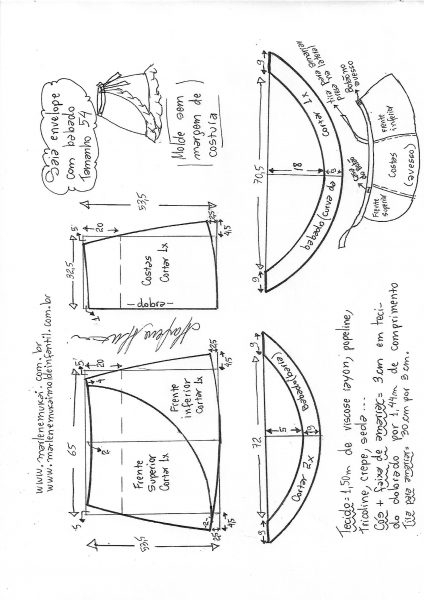 www.marlenemukai.com.br
www.marlenemukaimoldeinfantil.com.br
Saia envelope
com babado
Tamanho 54
Molde sem
margem de
costura
65
5
4
2
20
53,5
Frente
Superior
Cortar 1x
Frente
inferior
Cortar 1x
2
25
4,5
25
4,5
32,5
5
1
20
53,5
Costas
Cortar 1x
dobra
25
4,5
9
72
9
Babado (barra)
Cortar 2x
9
70,5
9
18
babado (curva da
cortar 1x
tira para amarrar
presa na lateral
Babado
avesso
Frente
Superior
Costas
(avesso)
Frente
inferior
Tecido = 1,50m de viscose rayon, popeline,
Tricoline, crepe, seda...
Cós + faixa de amarrar = 3cm em teci-
do dobrado por 1,44m de comprimento
Tira para amarrar = 30cm por 3cm.